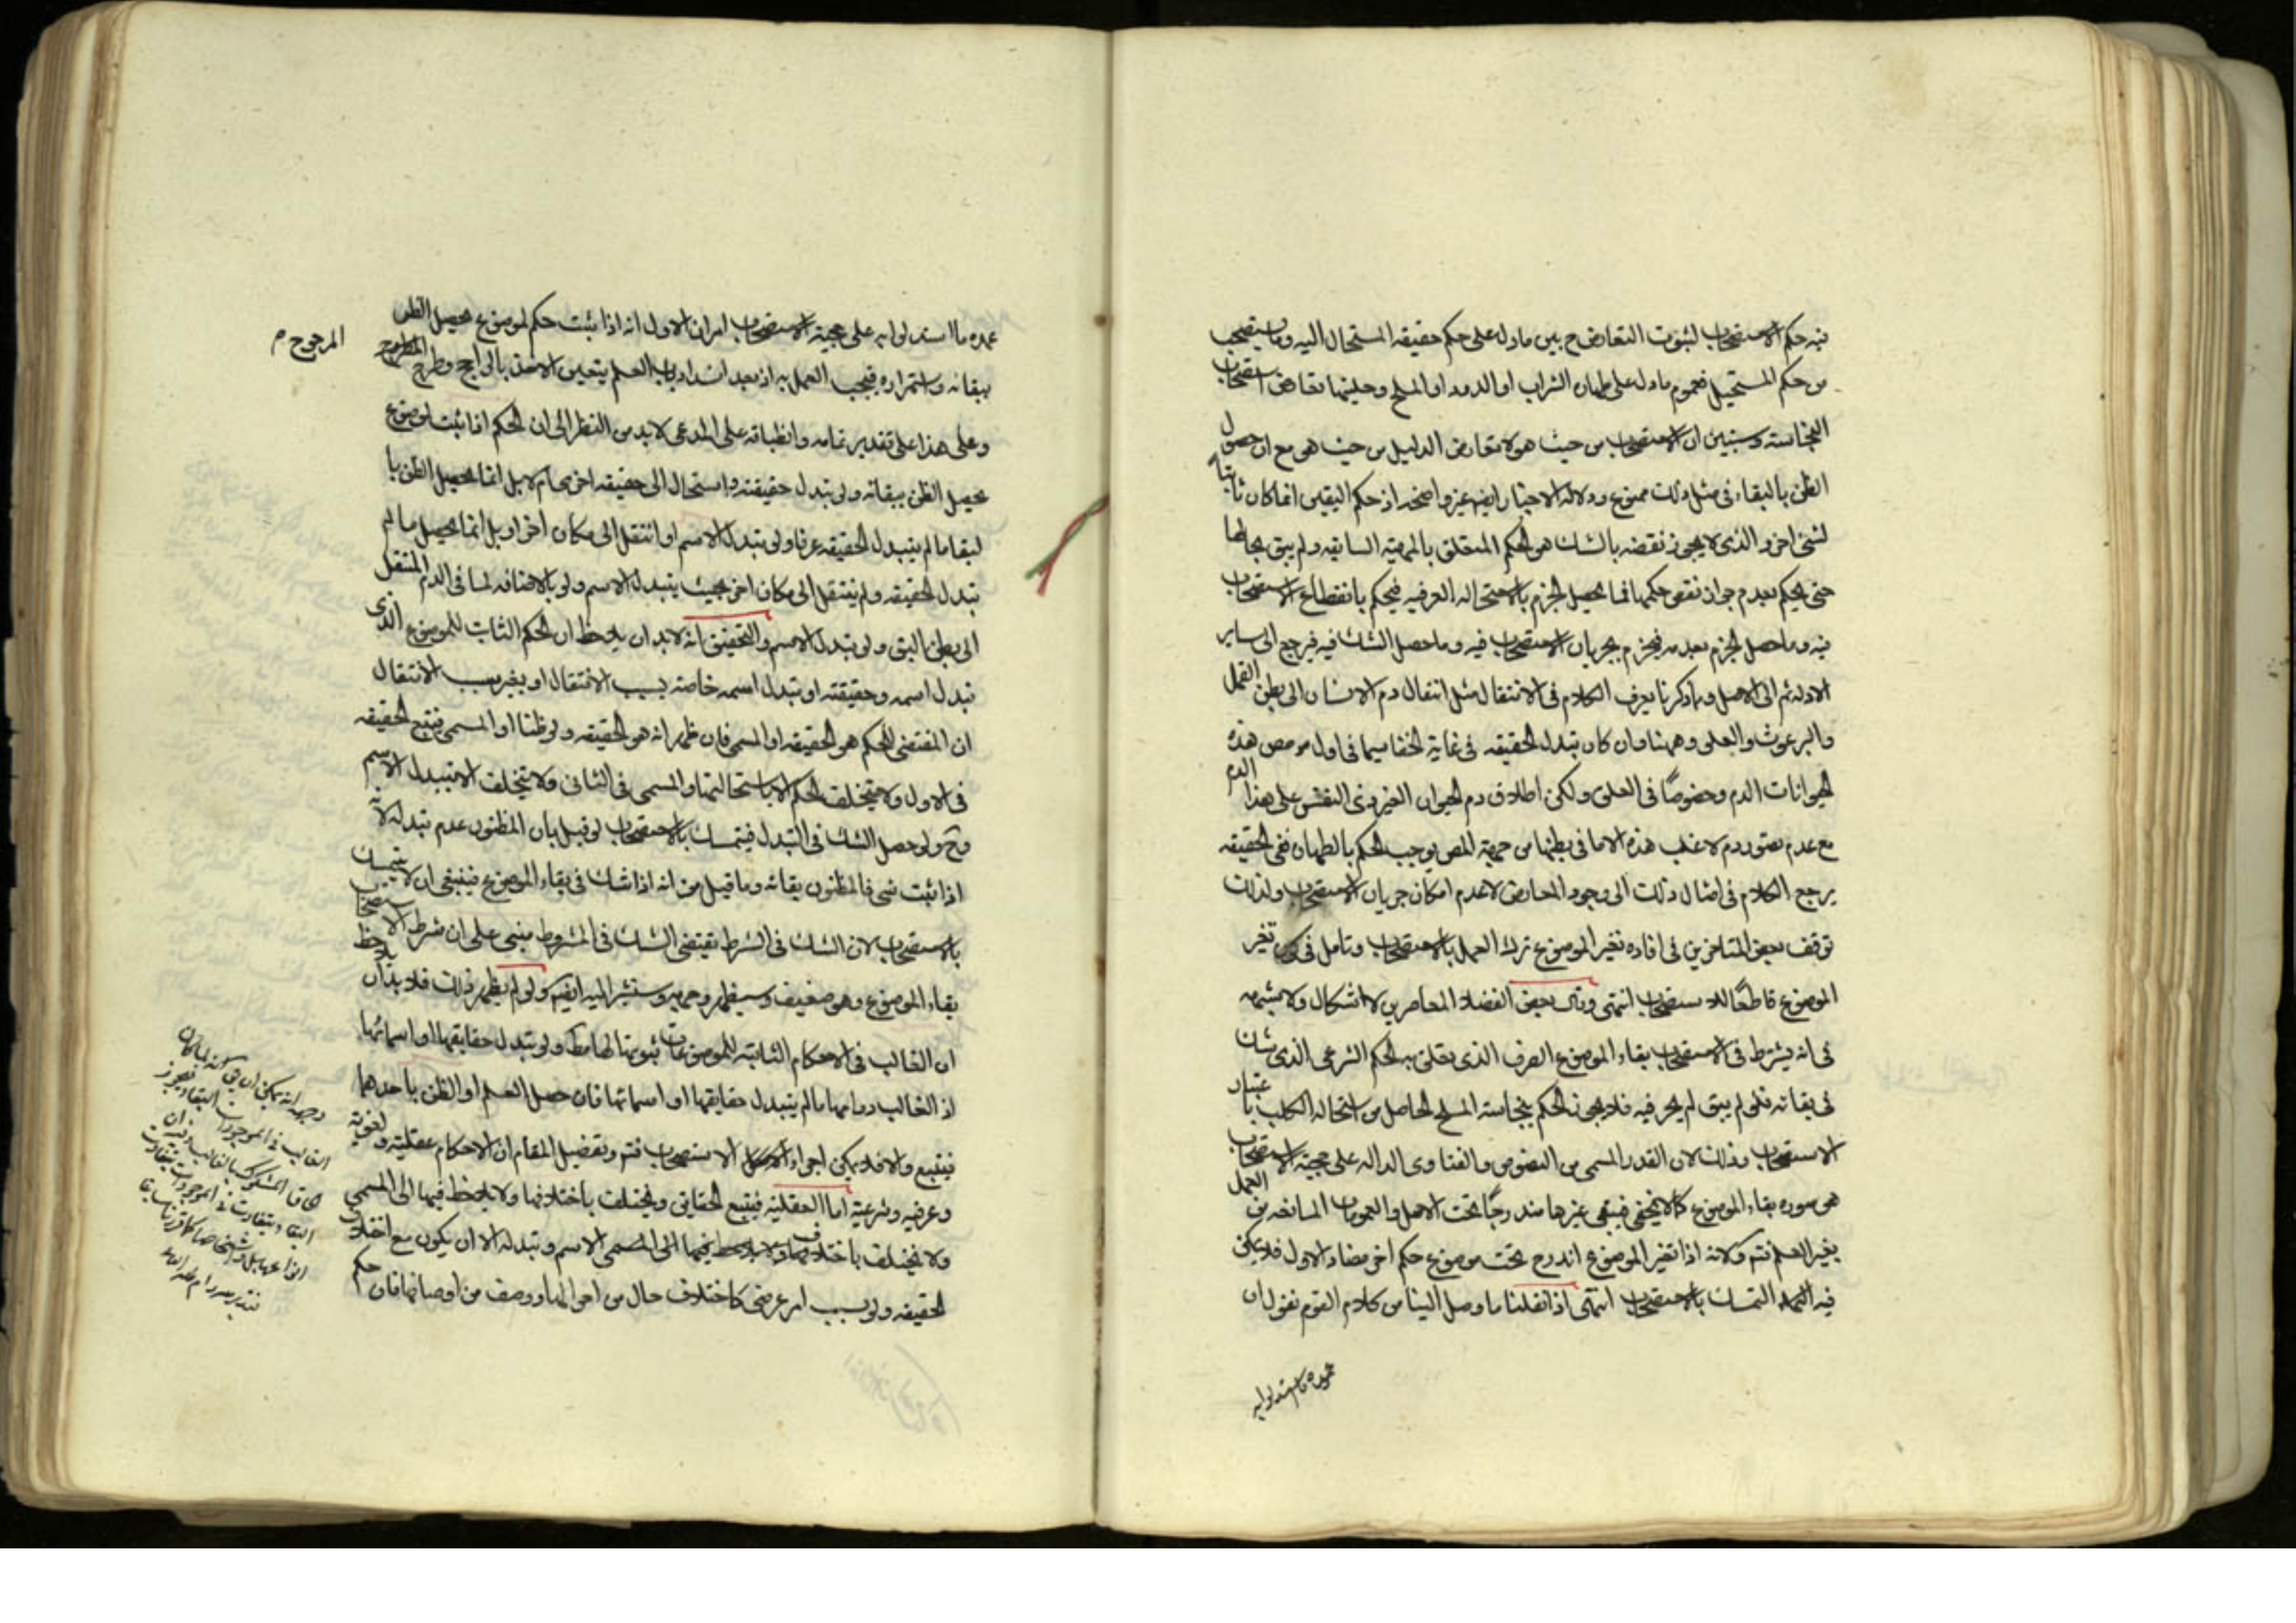 فيه حكم الاستصحاب لثبوت التعارض ح بين ما دل على حكم حقيقة المستحال اليه وما يستصحب
من حكم المستحيل فعموم ما دل على طهارة التراب او الدود او الملح وحليتهما تعارض استصحاب
النجاسة وسيتبين ان الاستصحاب من حيث هو لا تعارض الدليل من حيث هى مع ان حصول
الظن بالبقاء فى مثل ذلك ممنوع ودلالة الاخبار ايضا غير واضحة اذ حكم اليقين انما كان ثابتا
لشئ اخر والذى لا يجوز نقضه بالشك هو الحكم المتعلق بالمهية السابقه ولم يبق بحالها
حتى يحكم بعدم جواز نقض حكمها فما يحصل الجزم بالاستحاله العرفيه فيحكم بانقطاع الاستصحاب
فيه وما حصل الجزم بعدمه فيجزم بجريان الاستصحاب فيه وما حصل الشك فيه فيرجع الى ساير
الادلة ثم الى الاصل وبما ذكرنا يعرف الكلام فى الانتقال مثل انتقال دم الانسان الى بطن القمل
والبرغوث والعلق وههنا وان كان تبدل الحقيقه فى غاية الخفا سيما فى اول مص هذه
الحيوانات الدم وخصوصًا فى العلق ولكن اطلاق دم الحيوان الغير ذى النفس على هذا الدم
مع عدم تصور دم لاغلب هذه الا ما فى بطنها من جهة المص يوجب الحكم بالطهارة ففى الحقيقه
يرجع الكلام فى امثال ذلك الى وجود المعارض لا عدم امكان جريان الاستصحاب ولذلك
توقف بعض المتاخرين فى افاده تغير الموضوع ترك العمل بالاستصحاب وتامل فى كون تغير
الموضوع قاطعًا للاستصحاب انتهى وقال بعض الفضلاء المعاصرين لا اشكال ولا شبهه
فى انه يشترط فى الاستصحاب بقاء الموضوع العرف الذى يعلق به الحكم الشرعى الذى شك
فى بقائه فلو لم يبق لم يجر فيه فلا يجوز الحكم بنجاسة الملح الحاصل من استحالة الكلب باعتبار
الاستصحاب وذلك لان القدر المسمى من النصوص والفتاوى الداله على حجية الاستصحاب
هو صوره بقاء الموضوع كما لا يخفى فيبقى غيرها مندرجًا تحت الاصل والعمومات المانعه من العمل
بغير العلم فتم ولانه اذا تغير الموضوع اندرج تحت موضوع حكم اخر مضاد الاول فلا يمكن
فيه التمسك بالاستصحاب انتهى اذا نقلنا ما وصل الينا من كلام القوم نقول ان
عمده ما استدلوا به
عمده ما استدلوا به على حجية الاستصحاب امران الاول انه اذا ثبت حكم لموضوع يحصل الظن
ببقائه واستمراره فيجب العمل به اذ بعد انسداد باب العلم يتعين الاخذ بالراجح وطرح
المرجوح م
وعلى هذا على تقدير تمامه وانطباقه على المدعى لابد من النظر الى ان الحكم اذا ثبت لموضوع
يحصل الظن ببقائه ولو تبدل حقيقته واستحال الى حقيقه اخرى ام لا بل انما يحصل الظن با
لبقا ما لم يتبدل الحقيقه عرفا ولو تبدل الاسم او انتقل الى مكان اخر او بل انما يحصل ما لم
تبدل الحقيقه ولم ينتقل الى مكان اخر بحيث يتبدل الاسم ولو بالاضافه لما فى الدم المنتقل
الى بطن البق ولو تبدل الاسم والتحقيق انه لابد ان يلاحظ ان الحكم الثابت للموضوع الذى
تبدل اسمه وحقيقته او تبدل اسمه خاصة بسبب الانتقال او بغير سبب الانتقال
ان المقتضى للحكم هو الحقيقه او المسمى فان ظهر انه هو الحقيقه ولو ظنا او المسمى فيتبع الحقيقه
فى الاول ولا يتخلف الحكم الا باستحالتها والمسمى فى الثانى ولا يتخلف الا بتبدل الاسم
وح ولو حصل الشك فى التبدل فيتمسك بالاستصحاب لو قيل بان المظنون عدم تبدله لانه
اذا ثبت شئ فالمظنون بقائه وما قيل من انه اذا شك فى بقاء الموضوع فينبغى ان لا يتمسك
بالاستصحاب لان الشك فى الشرط يقتضى الشك فى المشروط مبنى على ان شرط الاستصحاب
بقاء الموضوع وهو ضعيف وسيظهر وجهه وسنشير اليه ايضا ولو لم يظهر ذلك فلابد ان يلاحظ
ان الغالب فى الاحكام الثابته للموضوعات ثبوتها لها مط ولو تبدل حقايقها او اسمائها
اذ الغالب دوامها ما لم يتبدل حقايقها او اسمائها فان حصل العلم او الظن باحدهما
فيتبع والا فلا يمكن اجراء الاستصحاب فتم وتفصيل المقام ان الاحكام عقلية ولغوية
وعرفيه وشرعية اما العقلية فيتبع الحقايق ويختلف باختلافها ولا يلاحظ فيها الى المسمى
ولا يختلف باختلاف المسمى الاسم وتبدله الا ان يكون مع اختلاف
الحقيقه ولو بسبب امر عرضى كاختلاف حال من احوالها ووصف من اوصافها فان حكم
وجهه انه يمكن ان يق انه لما كان
الغالب فى الموجودات البقاء فيجوز
الحاق المشكوك بالغالب وفيه ان
البقاء يتفاوت فى الموجودات بتفاوت
انواعها بل واشخاصها كما قررنا سابقا
فتدبر